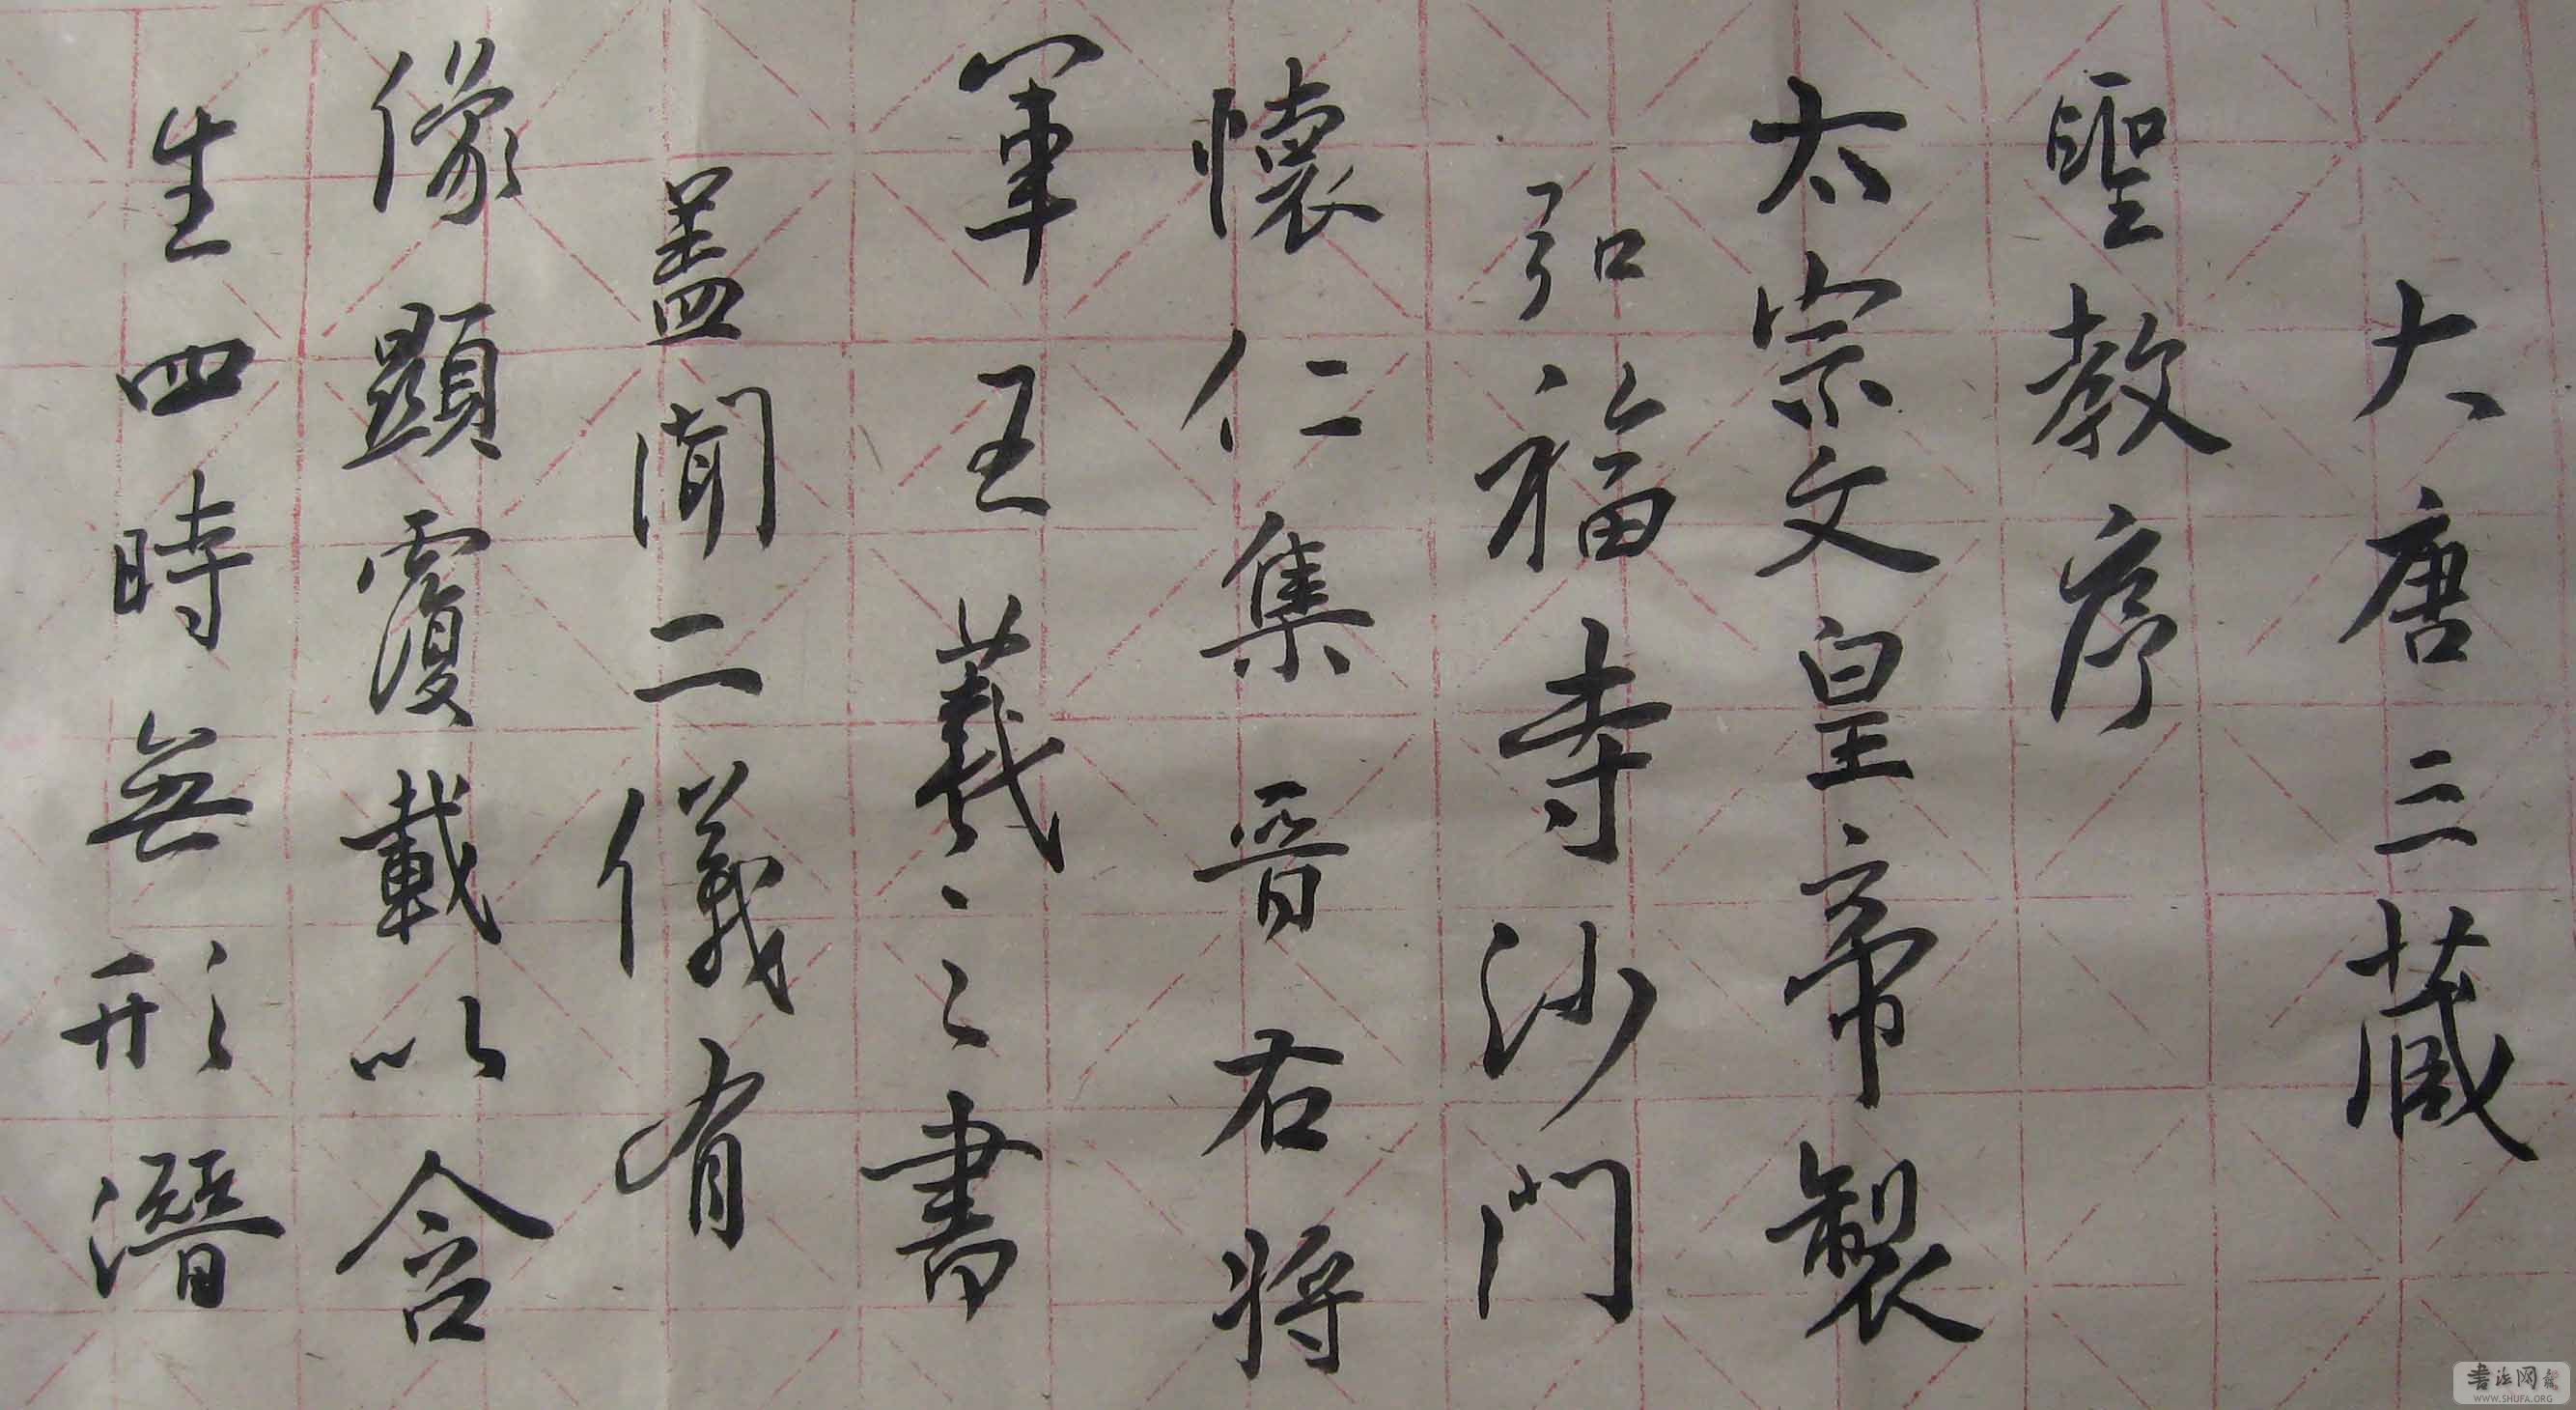 大唐三藏
聖教序
太宗文皇帝製
弘福寺沙門
懷仁集晋右将
軍王羲之書
蓋聞二儀有
像顯覆載以含
生四時無形潛
書法网
WWW.SHUFA.ORG